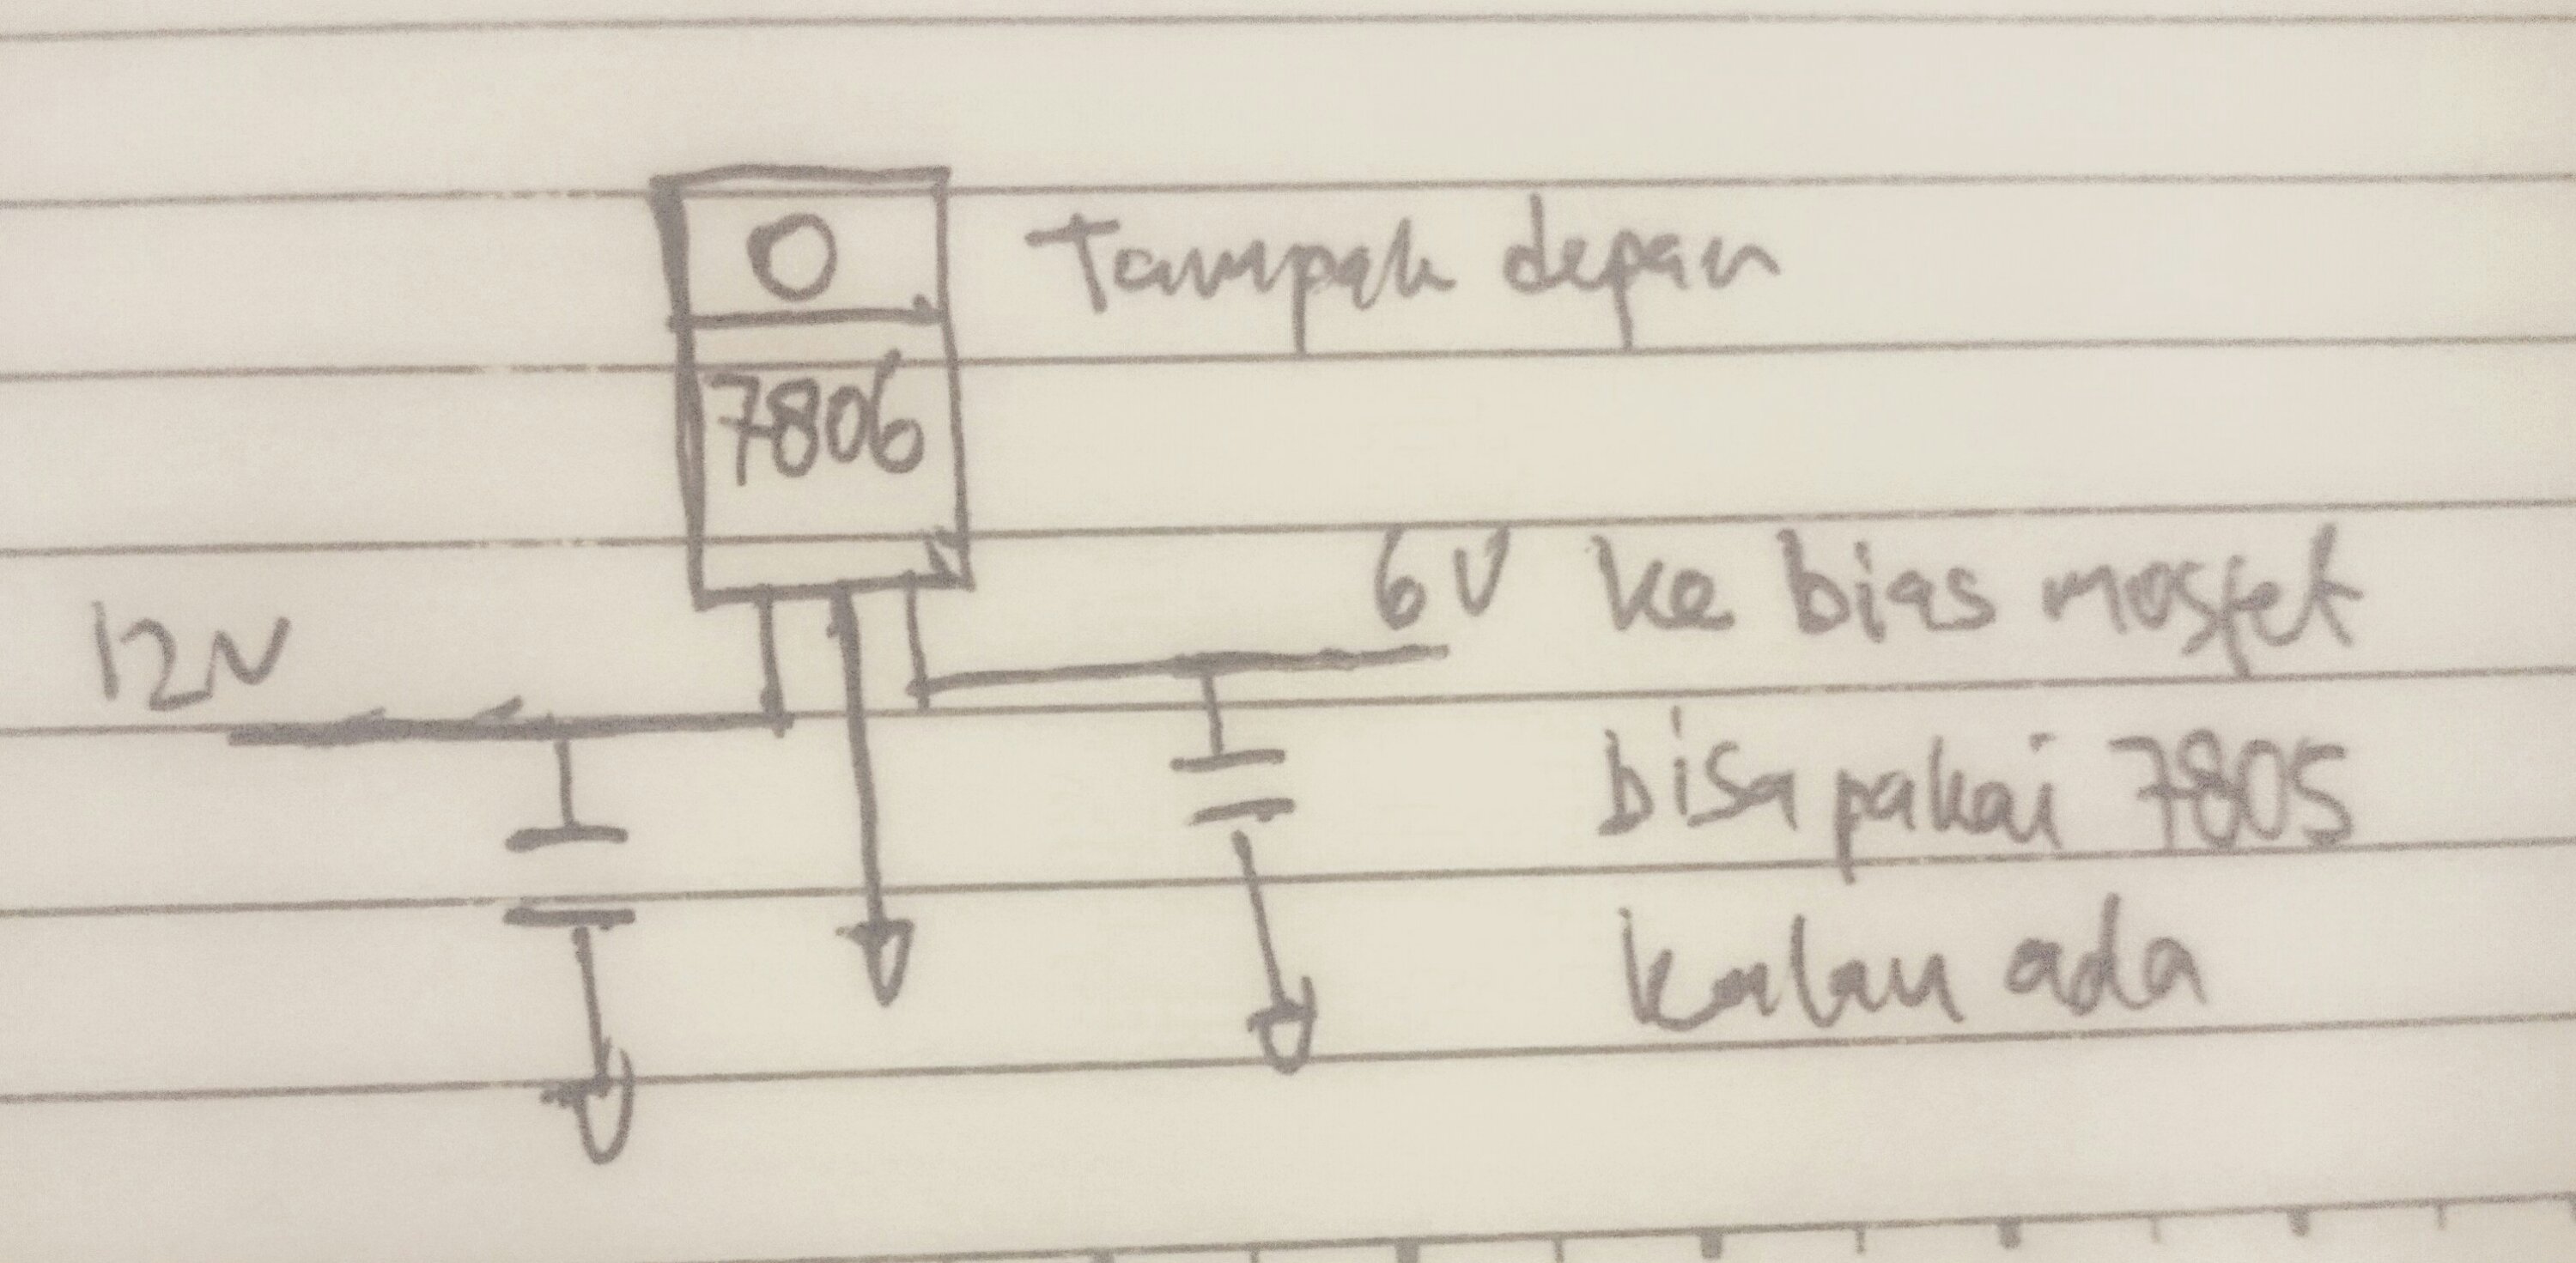 Tampak depan
7806
6V ke bias mosfet
12V
bisa pakai 7805
kalau ada